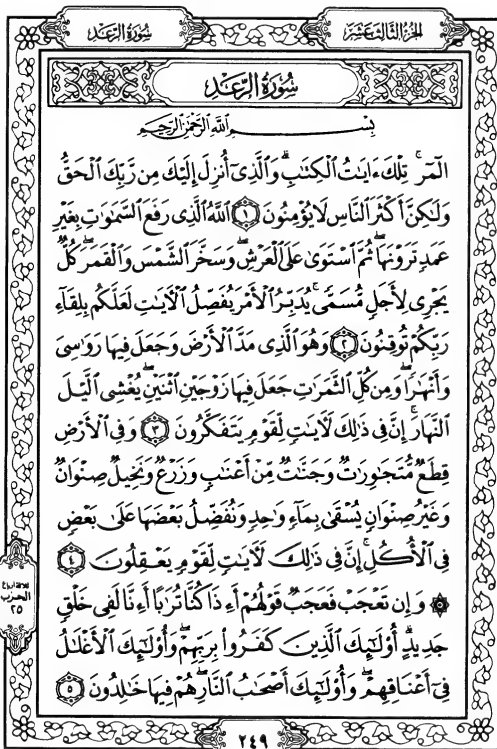 سُورَةُ الرَّعْدِ
الجُزْءُ الثَّالِثَ عَشَرَ
سُورَةُ الرَّعْدِ
بِسْمِ اللَّهِ الرَّحْمَٰنِ الرَّحِيمِ
الٓمٓرۚ تِلْكَ ءَايَٰتُ ٱلْكِتَٰبِۗ وَٱلَّذِىٓ أُنزِلَ إِلَيْكَ مِن رَّبِّكَ ٱلْحَقُّ
وَلَٰكِنَّ أَكْثَرَ ٱلنَّاسِ لَا يُؤْمِنُونَ ۝١ ٱللَّهُ ٱلَّذِى رَفَعَ ٱلسَّمَٰوَٰتِ بِغَيْرِ
عَمَدٍ تَرَوْنَهَاۖ ثُمَّ ٱسْتَوَىٰ عَلَى ٱلْعَرْشِۖ وَسَخَّرَ ٱلشَّمْسَ وَٱلْقَمَرَۖ كُلٌّ
يَجْرِى لِأَجَلٍ مُّسَمًّىۚ يُدَبِّرُ ٱلْأَمْرَ يُفَصِّلُ ٱلْءَايَٰتِ لَعَلَّكُم بِلِقَآءِ
رَبِّكُمْ تُوقِنُونَ ۝٢ وَهُوَ ٱلَّذِى مَدَّ ٱلْأَرْضَ وَجَعَلَ فِيهَا رَوَٰسِىَ
وَأَنْهَٰرًاۖ وَمِن كُلِّ ٱلثَّمَرَٰتِ جَعَلَ فِيهَا زَوْجَيْنِ ٱثْنَيْنِۖ يُغْشِى ٱلَّيْلَ
ٱلنَّهَارَۚ إِنَّ فِى ذَٰلِكَ لَءَايَٰتٍ لِّقَوْمٍ يَتَفَكَّرُونَ ۝٣ وَفِى ٱلْأَرْضِ
قِطَعٌ مُّتَجَٰوِرَٰتٌ وَجَنَّٰتٌ مِّنْ أَعْنَٰبٍ وَزَرْعٌ وَنَخِيلٌ صِنْوَانٌ
وَغَيْرُ صِنْوَانٍ يُسْقَىٰ بِمَآءٍ وَٰحِدٍ وَنُفَضِّلُ بَعْضَهَا عَلَىٰ بَعْضٍ
فِى ٱلْأُكُلِۚ إِنَّ فِى ذَٰلِكَ لَءَايَٰتٍ لِّقَوْمٍ يَعْقِلُونَ ۝٤
۞ وَإِن تَعْجَبْ فَعَجَبٌ قَوْلُهُمْ أَءِذَا كُنَّا تُرَٰبًا أَءِنَّا لَفِى خَلْقٍ
جَدِيدٍۗ أُو۟لَٰٓئِكَ ٱلَّذِينَ كَفَرُوا۟ بِرَبِّهِمْۖ وَأُو۟لَٰٓئِكَ ٱلْأَغْلَٰلُ
فِىٓ أَعْنَاقِهِمْۖ وَأُو۟لَٰٓئِكَ أَصْحَٰبُ ٱلنَّارِۖ هُمْ فِيهَا خَٰلِدُونَ ۝٥
ثلاثة أرباع
الحزب
٢٥
٢٤٩